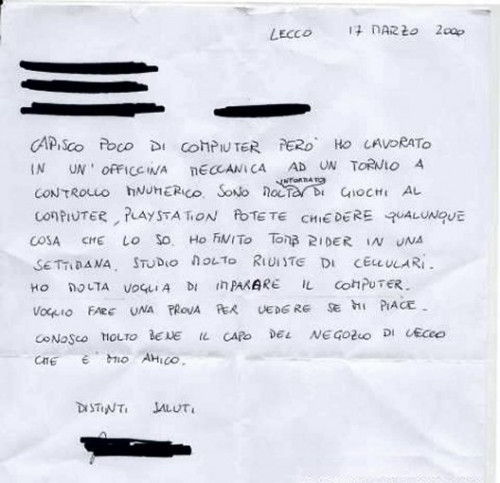 LECCO 17 MARZO 2000
CAPISCO POCO DI COMPIUTER PERO' HO LAVORATO
IN UN'OFFICCINA MECCANICA AD UN TORNIO A
CONTROLLO MNUMERICO. SONO MOLTO INFORMATO DI GIOCHI AL
COMPIUTER, PLAYSTATION POTETE CHIEDERE QUALUNQUE
COSA CHE LO SO. HO FINITO TOMB RIDER IN UNA
SETTIMANA. STUDIO MOLTO RIVISTE DI CELLULARI.
HO MOLTA VOGLIA DI IMPARARE IL COMPUTER.
VOGLIO FARE UNA PROVA PER VEDERE SE MI PIACE.
CONOSCO MOLTO BENE IL CAPO DEL NEGOZIO DI LECCO
CHE E' MIO AMICO.
DISTINTI SALUTI